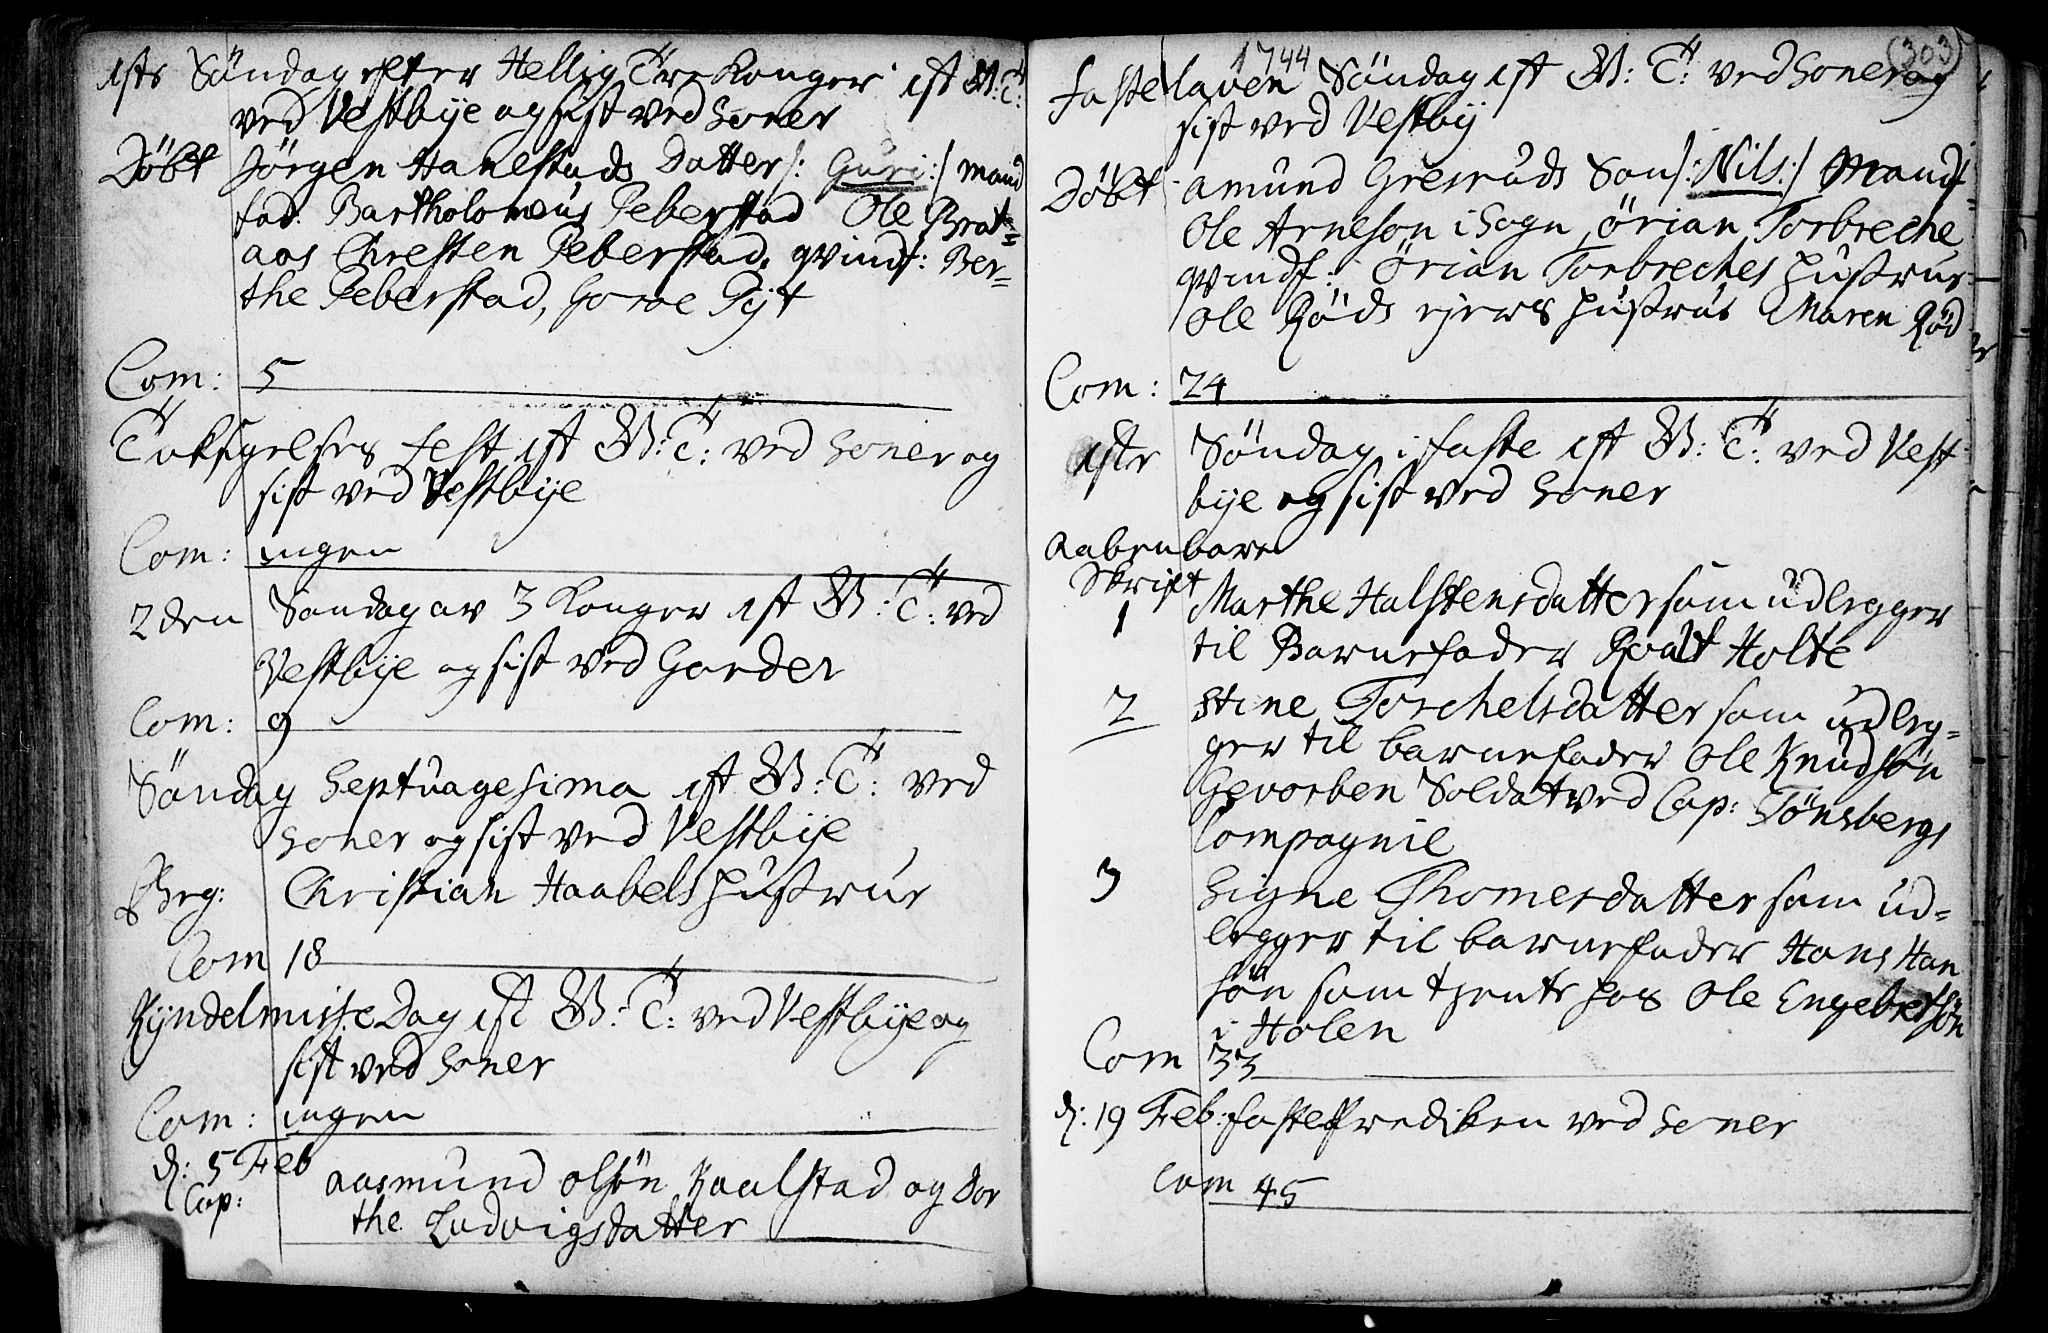 1ste Söndag efter Hellig Tre Konger ist W: T:
ved Vestbije og sist ved Soner
Döbt Jörgen Hanestads Datter /: Guri :/ mand
fad: Bartholomeus Peberstad Ole Brat=
aas Chresten Peberstad, qvindf: Ber=
the Peberstad, Goroe Pijt
Com: 5
Taksigelses Fest ist W: T: ved Soner og
sist ved Vestbije
Com: ingen
2den Söndag av 3 Konger ist W: T: ved
Vestbije og sist ved Garder
Com: 9
Söndag Septuagesima ist W: T: ved
Soner og sist ved Vestbije
Christian Haabels Hustrue
Com 18
Kyndelmisse Dag ist W: T: ved Vestbije og
sist ved Soner
Com: ingen
d: 5 Feb
Cop: Aasmund Olsön Kaalstad og Dor
the Ludvigsdatter
1744 (303)
Fastelaven Söndag ist W: T: ved Soner og
sist ved Vestbij
Döbt Amund Gresruds Son /: Nils :/ Mandf
Ole Arneson i Sogn, Örian Torbreche
qvindf: Örian Torbreches Hustrue
Ole Röds ejers Hustrue Maren Röd
Com: 24
1ste Söndag i faste ist W: T: ved Vest
bije og sist ved Soner
Aabenbare
Skrift
1 Marthe Halstensdatter som udlegger
til Barnefader Roalt Holte
2 Stine Torchelsdatter som udleg=
ger til barnefader Ole Knudsön
Gevorben Soldat ved Cap: Tönsbergs
Compagnie
3 Signe Thomesdatter som ud=
legger til barnefader Hans Han
sön som tjente hos Ole Engebretsön
i Holen
Com 33
d: 19 Feb: fasteprædiken ved Soner
Com 45